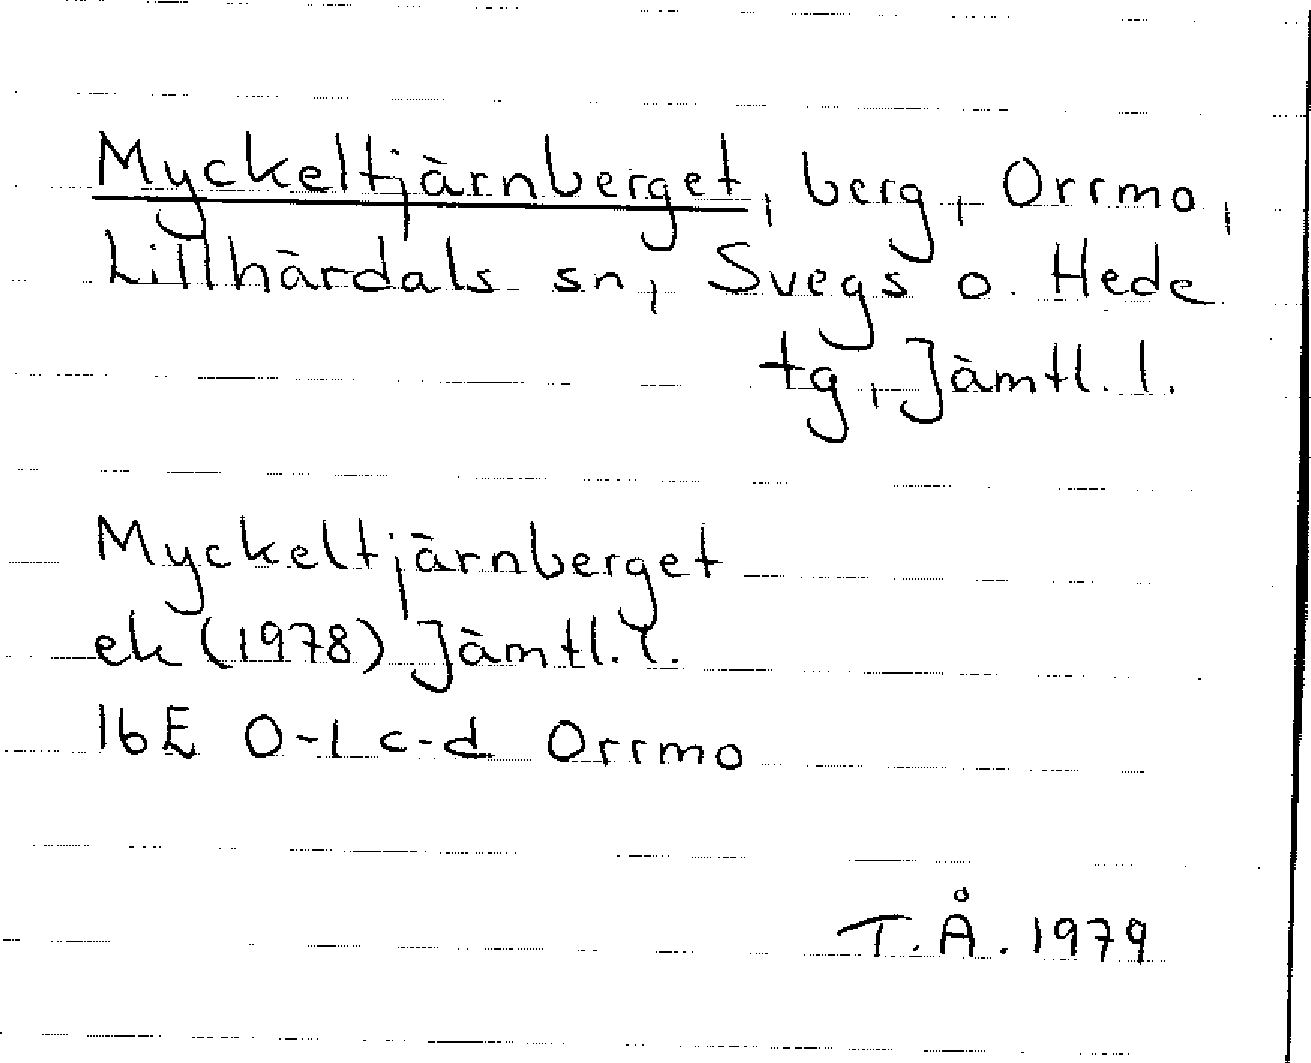 Myckeltjärnberget, berg, Orrmo,
Lillhärdals sn, Svegs o. Hede
tg, Jämtl. l.
Myckeltjärnberget
ek (1978) Jämtl. l.
16E 0-1 c-d Orrmo
T.Å. 1979